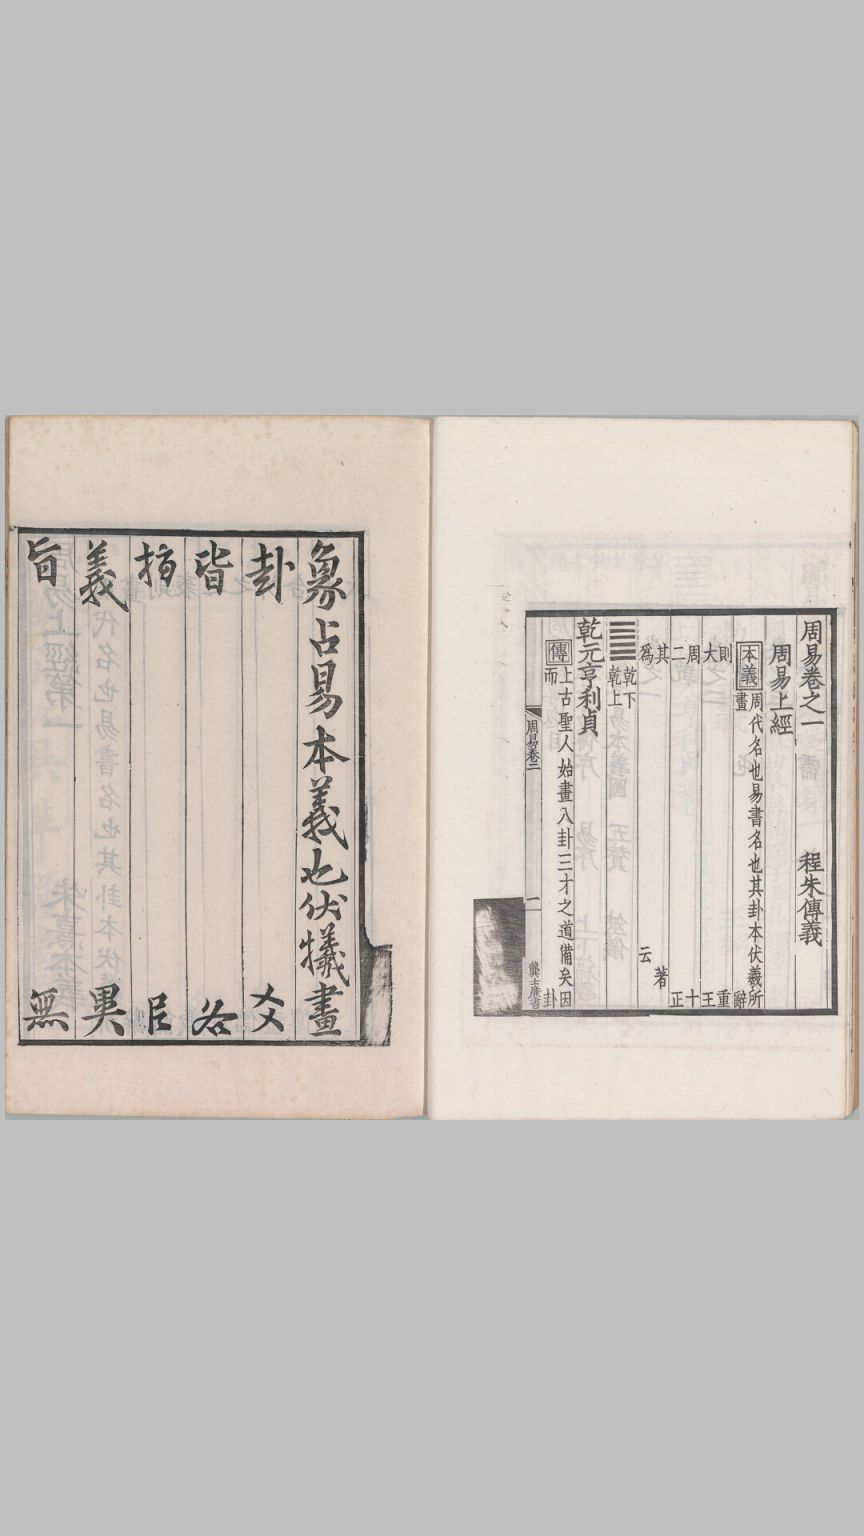 周易卷之一 程朱傳義
周易上經
本義 周代名也易書名也其卦本伏羲所
畫 辭
則 重
大 王
周 十
二 正
其 著
爲 云
乾下
乾上
乾元亨利貞
傳 上古聖人始畫八卦三才之道備矣因
而 卦
周易卷二 二 龔士廉書
象占易本義也伏犧畫
卦 爻
皆
指
義 異
旨 無